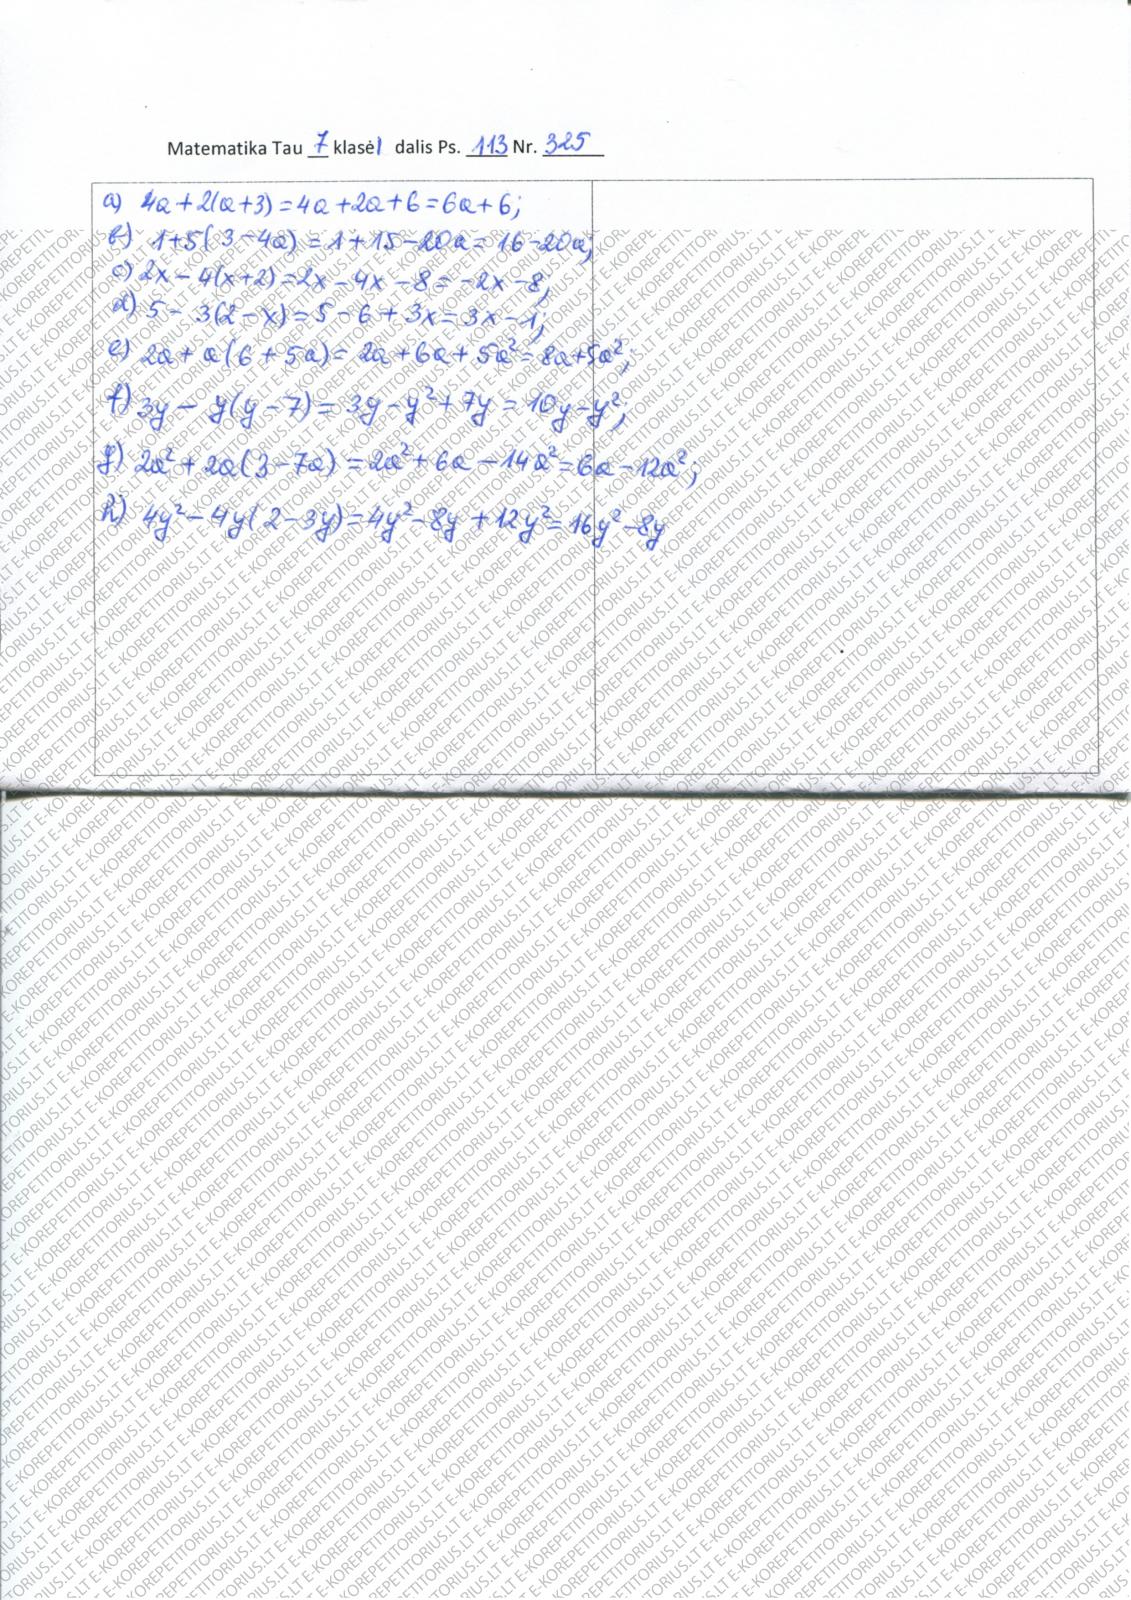 Matematika Tau 7 klasė 1 dalis Ps. 113 Nr. 325
a) 4a+2(a+3)=4a+2a+6=6a+6;
b) 1+5(3-4a)=1+15-20a=16-20a;
c) 2x-4(x+2)=2x-4x-8=-2x-8;
d) 5-3(2-x)=5-6+3x=3x-1;
e) 2a+a(6+5a)=2a+6a+5a²=8a+5a²;
f) 3y-y(y-7)=3y-y²+7y=10y-y²;
g) 2a²+2a(3-7a)=2a²+6a-14a²=6a-12a²;
h) 4y²-4y(2-3y)=4y²-8y+12y²=16y²-8y
E-KOREPETITORIUS.LT